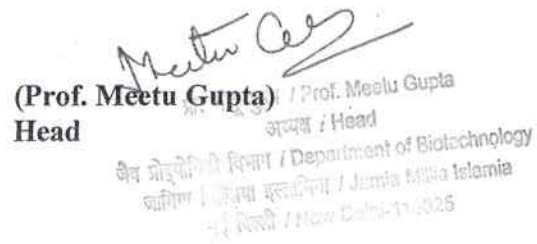 (Prof. Meetu Gupta)
Head
/ Prof. Meetu Gupta
अध्यक्ष / Head
जैव प्रौद्योगिकी विभाग / Department of Biotechnology
जामिया मिल्लिया इस्लामिया / Jamia Millia Islamia
नई दिल्ली / New Delhi-110025